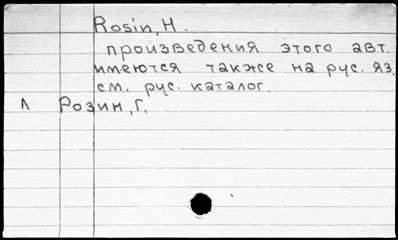 Rosin, H.
произведения этого авт.
имеются также на рус. яз.
см. рус. каталог
Л Розин, Г.